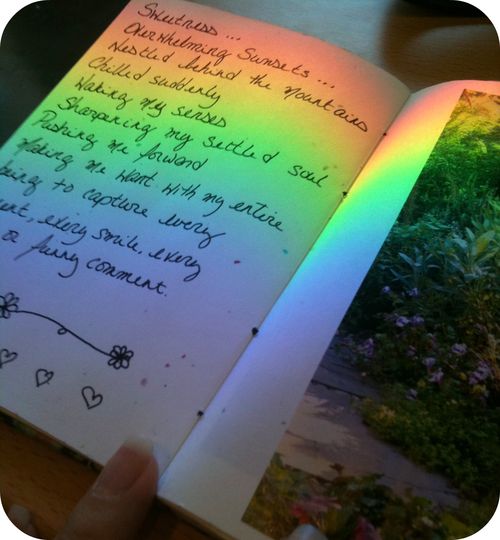 Sweetness...
Overwhelming Sunsets...
Nestled behind the mountains
Chilled suddenly
Waking my senses
Sharpening my settled soul
Pushing me forward
Making me want with my entire
being to capture every
, every smile, every
or funny comment.